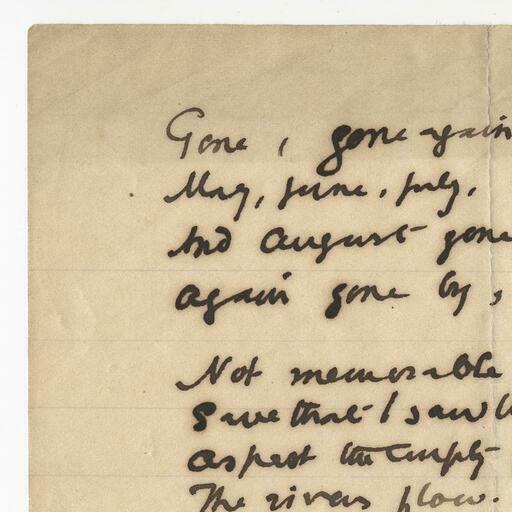 Gone, gone again
May, June, July,
And August gone
again gone by,
Not memorable
Save that I saw
As past the empty
The rivers flow.